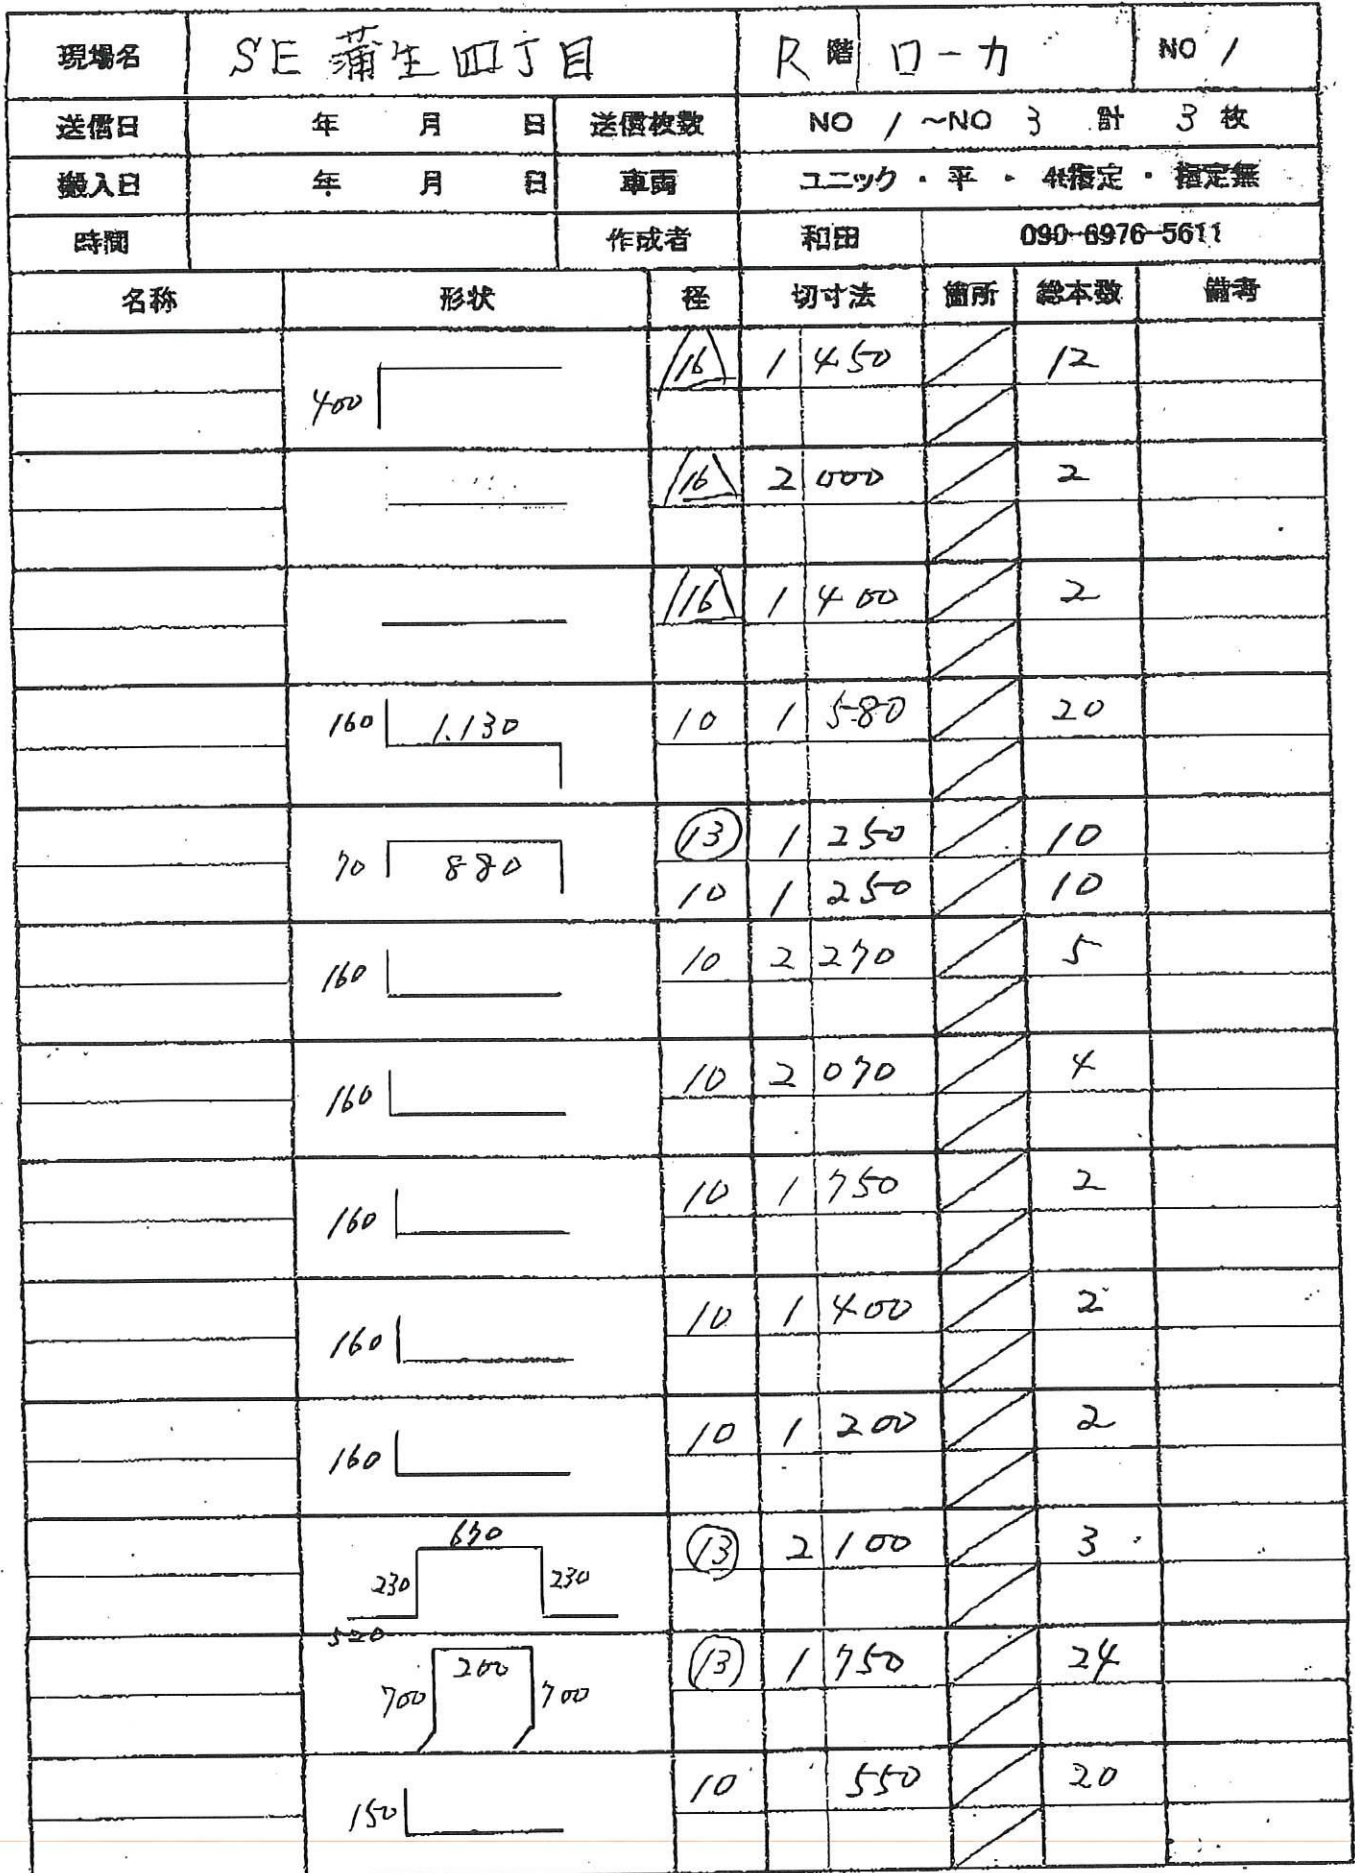 現場名 SE 蒲生四丁目 R 階 ローカ NO 1
送信日 年 月 日 送信枚数 NO 1 ~NO 3 計 3 枚
搬入日 年 月 日 車両 ユニック・平・4t指定・指定無
時間 作成者 和田 090-6976-5611
名称 形状 径 切寸法 箇所 総本数 備考
400 16 1 450 12
16 2 000 2
16 1 400 2
160 1.130 10 1 580 20
70 880 13 1 250 10
10 1 250 10
160 10 2 270 5
160 10 2 070 4
160 10 1 750 2
160 10 1 400 2
160 10 1 200 2
670 230 230 520 13 2 100 3
200 700 700 13 1 750 24
150 10 550 20